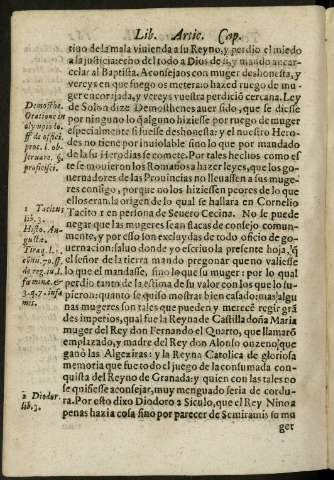 Lib. Artic. Cap.
tiuo de la mala viuienda a su Reyno, y perdio el miedo
a la justicia: echo del todo a Dios de si, y mando encar-
celar al Baptista. Aconsejaos con muger deshonesta, y
vereys en que fuego os metera: o hazed ruego de mu-
ger enconjada, y vereys vuestra perdició cercana. Ley
de Solon dize Demosthenes auer sido, que se diesse
por ninguno lo q̃ alguno hiziesse por ruego de muger
especialmente si fuesse deshonesta: y el nuestro Hero-
des no tiene por inuiolable sino lo que por mandado
de la su Herodias se comete. Por tales hechos como es
te se mouieron los Romanos a hazer leyes, que los go-
uernadores de las Prouincias no lleuassen a sus muge-
res consigo, porque no los hiziessen peores de lo que
ellos eran: la origen de lo qual se hallara en Cornelio
Tacito 1 en persona de Seuero Cecina. No se puede
negar que las mugeres sean flacas de consejo comun-
mente, y por esso son excluydas de todo oficio de go-
uernacion: saluo donde yo escriuo la presente hoja, q̃
el señor de la tierra mando pregonar que no valiesse
lo que el mandasse, sino lo que su muger: por lo qual
perdio tanto de la estima de su valor con los que lo su-
pieron: quanto se quiso mostrar bien casado: mas algu
nas mugeres son tales que pueden y merecē regir grā
des imperios, qual fue la Reyna de Castilla doña Maria
muger del Rey don Fernando el Quarto, que llamarō
emplazado, y madre del Rey don Alonso onzeno, que
ganò las Algeziras: y la Reyna Catolica de gloriosa
memoria que fue todo el juego de la consumada con-
quista del Reyno de Granada: y quien con las tales no
se quisiesse aconsejar, muy menguado seria de cordu-
ra. Por esto dixo Diodoro 2 Siculo, que el Rey Nino a
penas hazia cosa sino por parecer de Semiramis su mu
ger
Demosthe.
Oratione in
olympio to.
ff. de offici.
proc. l. ob-
seruare. §.
proficisci.
1 Tacitus
lib. 3.
Histo. Au-
gusta.
Tiraq. l. 1.
de reg. iu. l.
fœminæ. &
3. q. 7. infa
mis.
2 Diodor.
lib. 3.